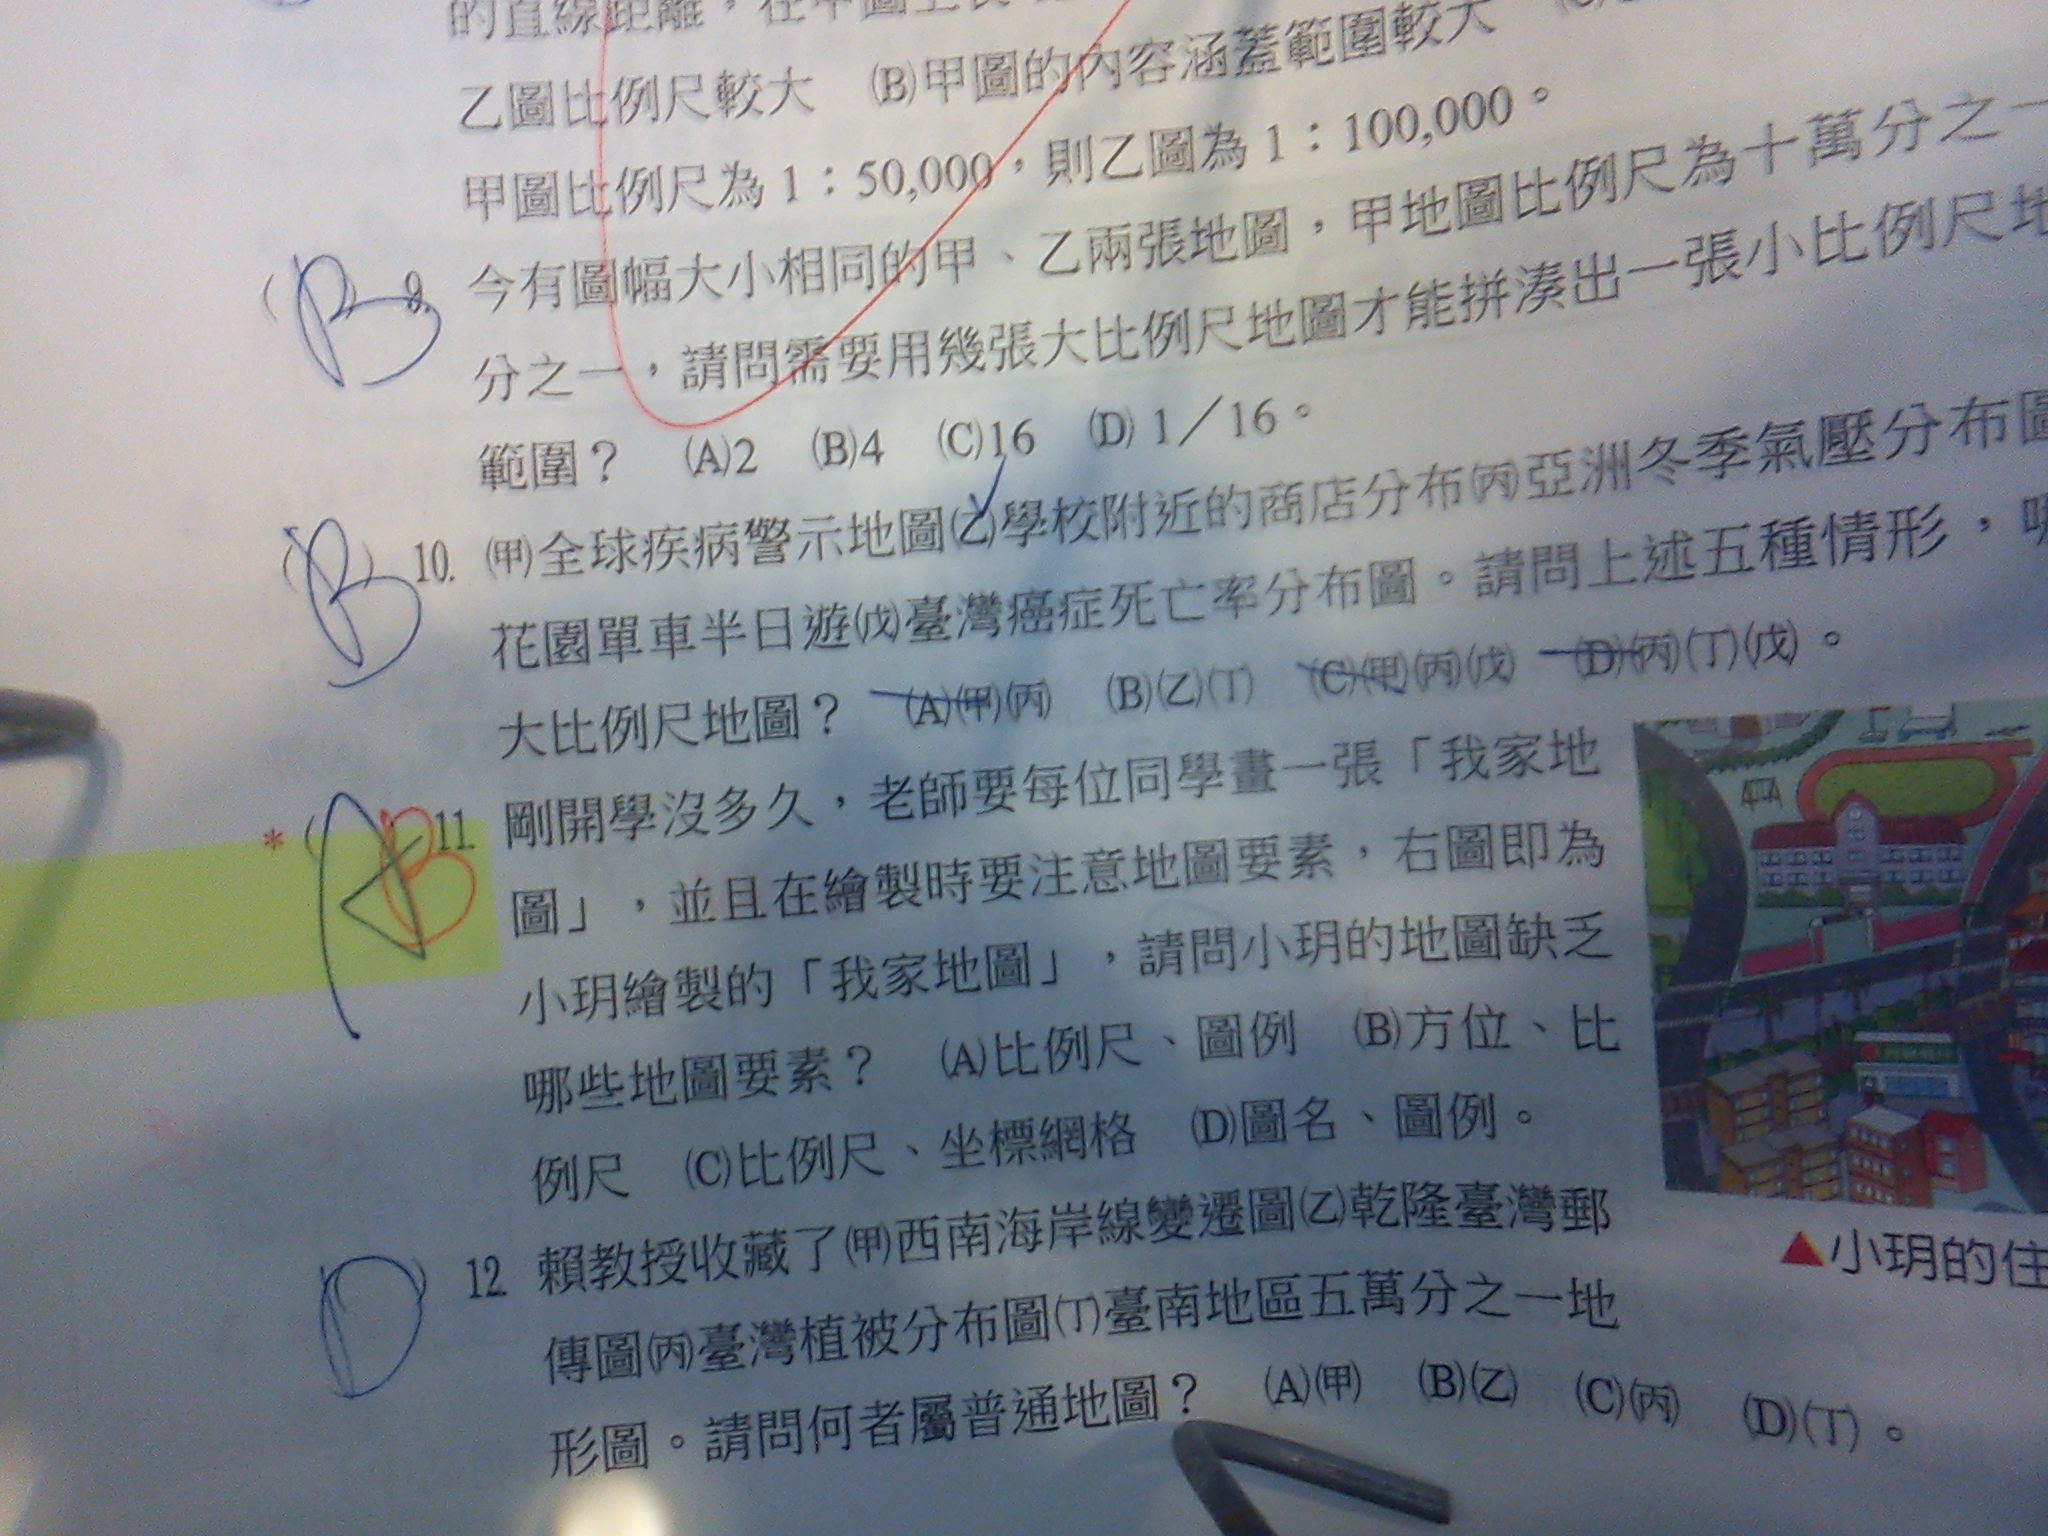 的直線距離，在甲圖上長
乙圖比例尺較大 (B)甲圖的內容涵蓋範圍較大
甲圖比例尺為1：50,000，則乙圖為1：100,000。
(B) 9. 今有圖幅大小相同的甲、乙兩張地圖，甲地圖比例尺為十萬分之一
分之一，請問需要用幾張大比例尺地圖才能拼湊出一張小比例尺地
範圍？ (A)2 (B)4 (C)16 (D)1／16。
(B) 10. (甲)全球疾病警示地圖(乙)學校附近的商店分布(丙)亞洲冬季氣壓分布圖
花園單車半日遊(戊)臺灣癌症死亡率分布圖。請問上述五種情形，哪
大比例尺地圖？ (A)(甲)(丙) (B)(乙)(丁) (C)(甲)(丙)(戊) (D)(丙)(丁)(戊)。
*(A B 11. 剛開學沒多久，老師要每位同學畫一張「我家地
圖」，並且在繪製時要注意地圖要素，右圖即為
小玥繪製的「我家地圖」，請問小玥的地圖缺乏
哪些地圖要素？ (A)比例尺、圖例 (B)方位、比
例尺 (C)比例尺、坐標網格 (D)圖名、圖例。
(D) 12. 賴教授收藏了(甲)西南海岸線變遷圖(乙)乾隆臺灣郵
傳圖(丙)臺灣植被分布圖(丁)臺南地區五萬分之一地
形圖。請問何者屬普通地圖？ (A)(甲) (B)(乙) (C)(丙) (D)(丁)。
▲小玥的住